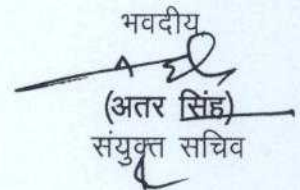 भवदीय
(अतर सिंह)
संयुक्त सचिव